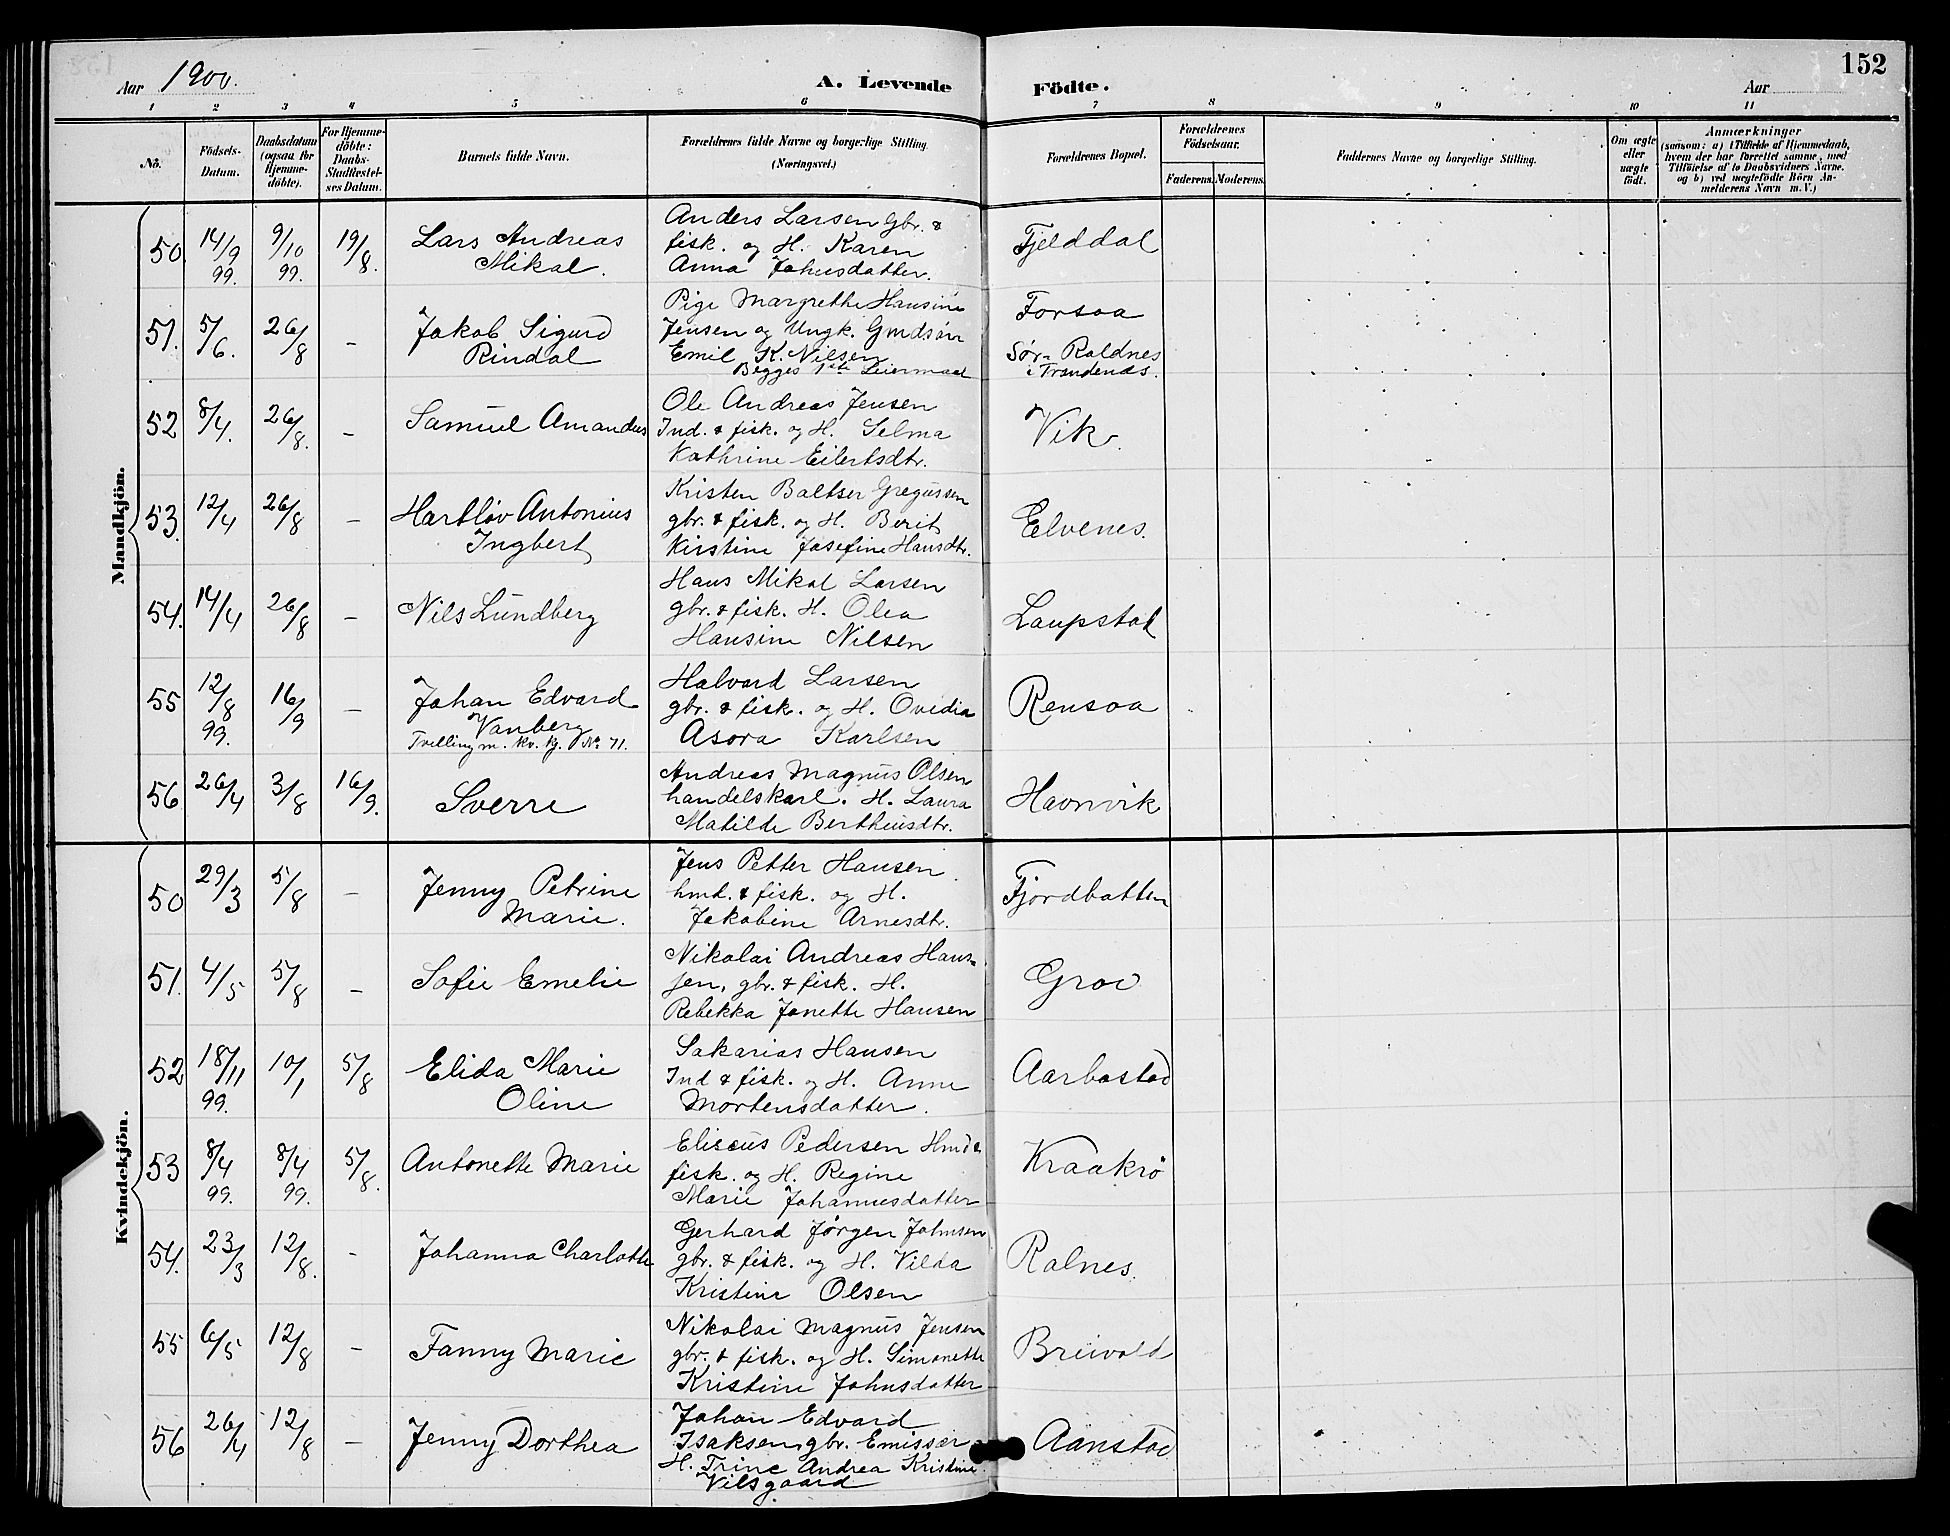 152
Aar 1900.
A. Levende Födte.
Aar
1 2 3 4 5 6 7 8 9 10 11
No.
Födsels-Datum.
Daabsdatum (ogsaa for Hjemme-döbte).
For Hjemme-döbte: Daabs-Stadfæstel-ses Datum.
Barnets fulde Navn.
Forældrenes fulde Navne og borgerlige Stilling (Næringsvei.)
Forældrenes Bopæl.
Forældrenes Födselsaar.
Faderens. Moderens.
Faddernes Navne og borgerlige Stilling.
Om ægte eller uægte födt.
Anmærkninger
(saasom: a) i Tilfælde af Hjemmedaab, hvem der har forrettet samme, med Tilföielse af to Daabsvidners Navne, og b) ved uægtefödte Börn An-melderens Navn m. V.)
Mandkjön.
50. 14/9 99. 9/10 99. 19/8. Lars Andreas
Mikal.
Anders Larsen gbr. &
fisk. og H. Karen
Anna Johnsdatter.
Fjelddal
51. 5/6. 26/8 – Jakob Sigurd
Rindal
Pige Margrethe Hansine
Jensen og Ungk. Gmdsøn
Emil K. Nilsen
Begges 1ste Leiermaal
Forsaa
Sør-Roldnes
i Trondenæs.
52 8/4. 26/8. – Samuel Amandus
Ole Andreas Jensen
Ind. & fisk. og H. Selma
Kathrine Eilertsdtr.
Vik.
53. 12/4 26/8 – Hartløv Antonius
Ingbert
Kristen Baltser Gregussen
gbr. & fisk. og H. Berit
Kirstine Josefine Hansdtr.
Elvenes.
54. 14/4 26/8 – Nils Lundberg
Hans Mikal Larsen
gbr. & fisk. H. Olea
Hansine Nilsen
Laupstad
55 12/8 99. 16/9 – Johan Edvard
Vanberg
Tvilling m. kv. kj. No. 71.
Halvard Larsen
gbr. & fisk. og H. Ovidia
Asora Karlsen
Rensaa
56 26/4 3/8 16/9. Sverre
Andreas Magnus Olsen
handelskarl. H. Laura
Matilde Bertheusdtr.
Havnvik
Kvindekjön.
50 29/3 5/8 – Jenny Petrine
Marie.
Jens Petter Hansen
hmd. & fisk. og H.
Jakobine Arnesdtr.
Fjordbotten
51. 4/5 5/8 – Sofie Emelie
Nikolai Andreas Han-
sen, gbr. & fisk. H.
Rebekka Janette Hansen
Grov
52 18/11 99. 10/1 5/8 Elida Marie
Oline
Sakarias Hansen
Ind & fisk. og H. Anne
Mortensdatter.
Aarbostad
53 8/4 99. 8/4 99. 5/8. Antonette Marie
Eliseus Pedersen Hmd &
fisk. og H. Regine
Marie Johannesdatter
Kraakrö
54. 23/3 12/8. – Johanna Charlotte
Gerhard Jørgen Johnsen
gbr. & fisk. og H. Vilda
Kristine Olsen
Rolnes.
55 6/5 12/8 – Fanny Marie
Nikolai Magnus Jensen
gbr. & fisk. og H. Simonette
Kristine Johnsdatter
Breivold
56 26/4 12/8 – Jenny Dorthea
Johan Edvard
Isaksen, gbr. Emissær
H. Trine Andrea Kristine
Vilsgaard
Aanstad